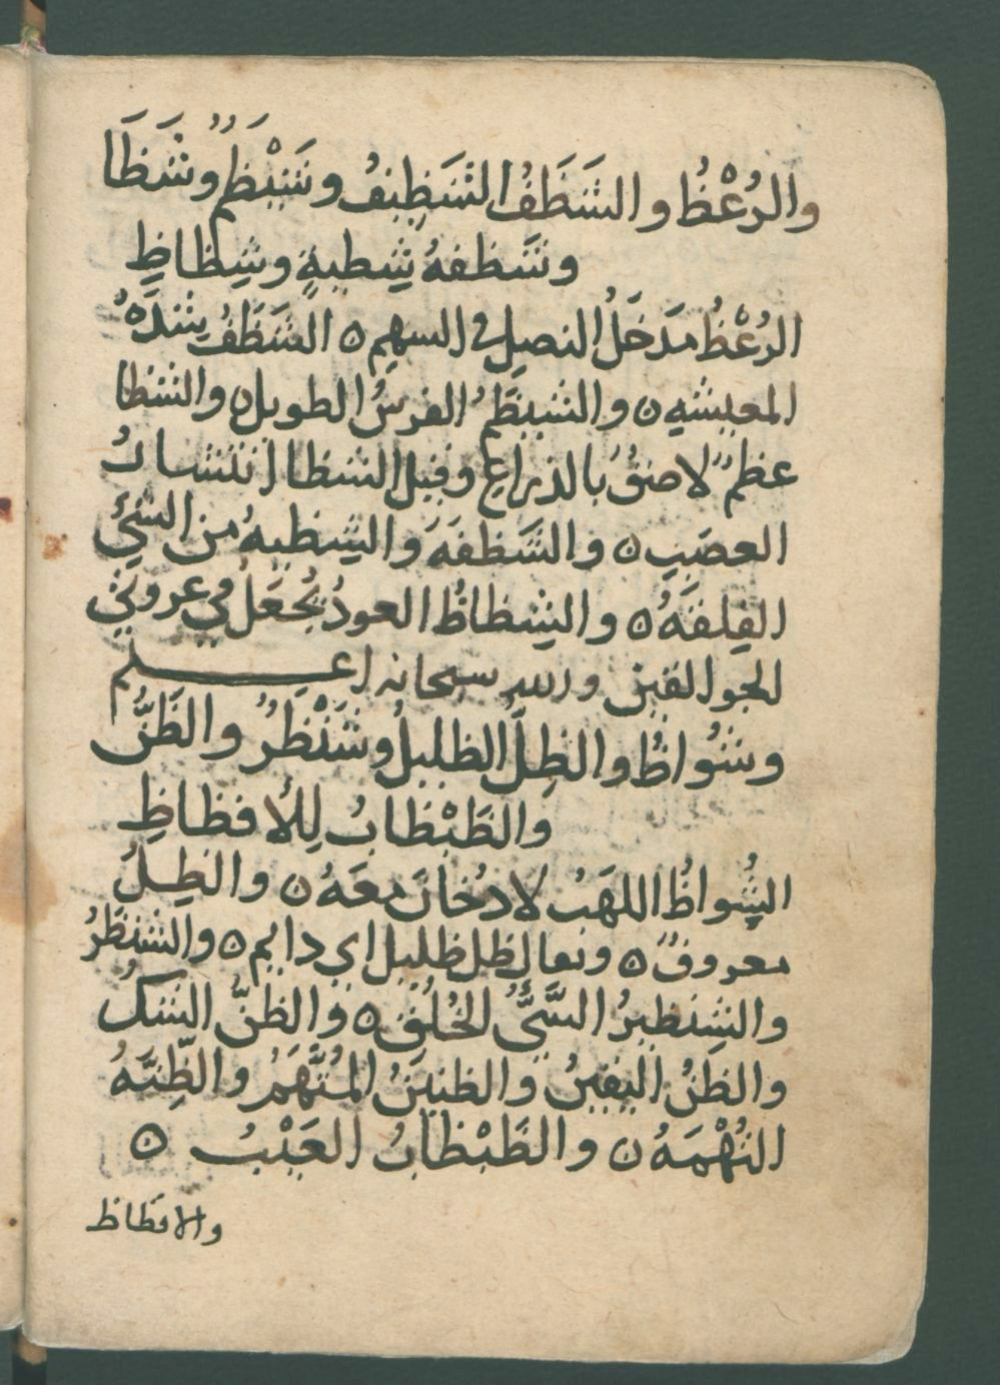 والرُعْظُ والشَظَفُ الشَظِيفُ وشَيْظَمٌ وشَظَا
وشَظفةٍ شِظيةٍ وشِظاظِ
الرُعْظُ مَدخَلُ النصلِ في السهمِ ٥ الشَظَفُ شِدَّهُ
المعيشهِ ٥ والشيظَمُ الفرسُ الطويل ٥ والشظا
عظمٌ لاصقٌ بالذراعِ وقيل الشظا انتشارُ
العصَبِ ٥ والشَظفَهَ والشِظيهُ من الشئِ
الفِلقهُ ٥ والشِظاظُ العودُ يُجعَلُ في عروتي
الجوالقين والله سبحانه اعلم
وشُواظُ والظِلُّ الظليلُ وشَنْظَرٌ والظَنُّ
والظَبْظابُ لِلأفظاظِ
الشُِواظُ اللهَبُ لا دُخانَ معَهُ ٥ والظِلُّ
معروفٌ ٥ ويقال ظل ظليل اي دايم ٥ والشنظَرُ
والشِنظيرُ السَّيُّ الخُلُقِ ٥ والظنُّ الشكُ
والظنُ اليقينُ والظنينُ المُتَّهَمُ والظِّنَّهُ
التُهْمَهُ ٥ والظَبْظابُ العَيْبُ ٥
والافظاظ